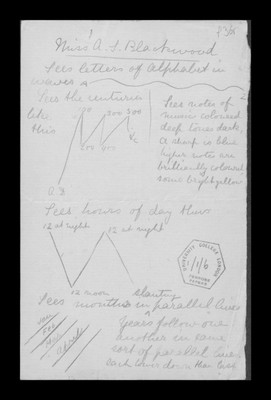 Miss A. S. Blackwood
Sees letters of alphabet in
waves
Sees the centuries
like
this
100 300 500
200 400
&c
A.D.
Sees notes of
music coloured
deep tones dark,
A sharp is blue
higher notes are
brilliantly coloured
some bright yellow
Sees hours of day thus
12 at night 12 at night
12 noon
Sees months in slanting parallel lines
Jan
Feb
Mar
April
Years follow one
another in same
sort of parallel lines
each thus down
UNIVERSITY COLLEGE LONDON
1/6
GALTON